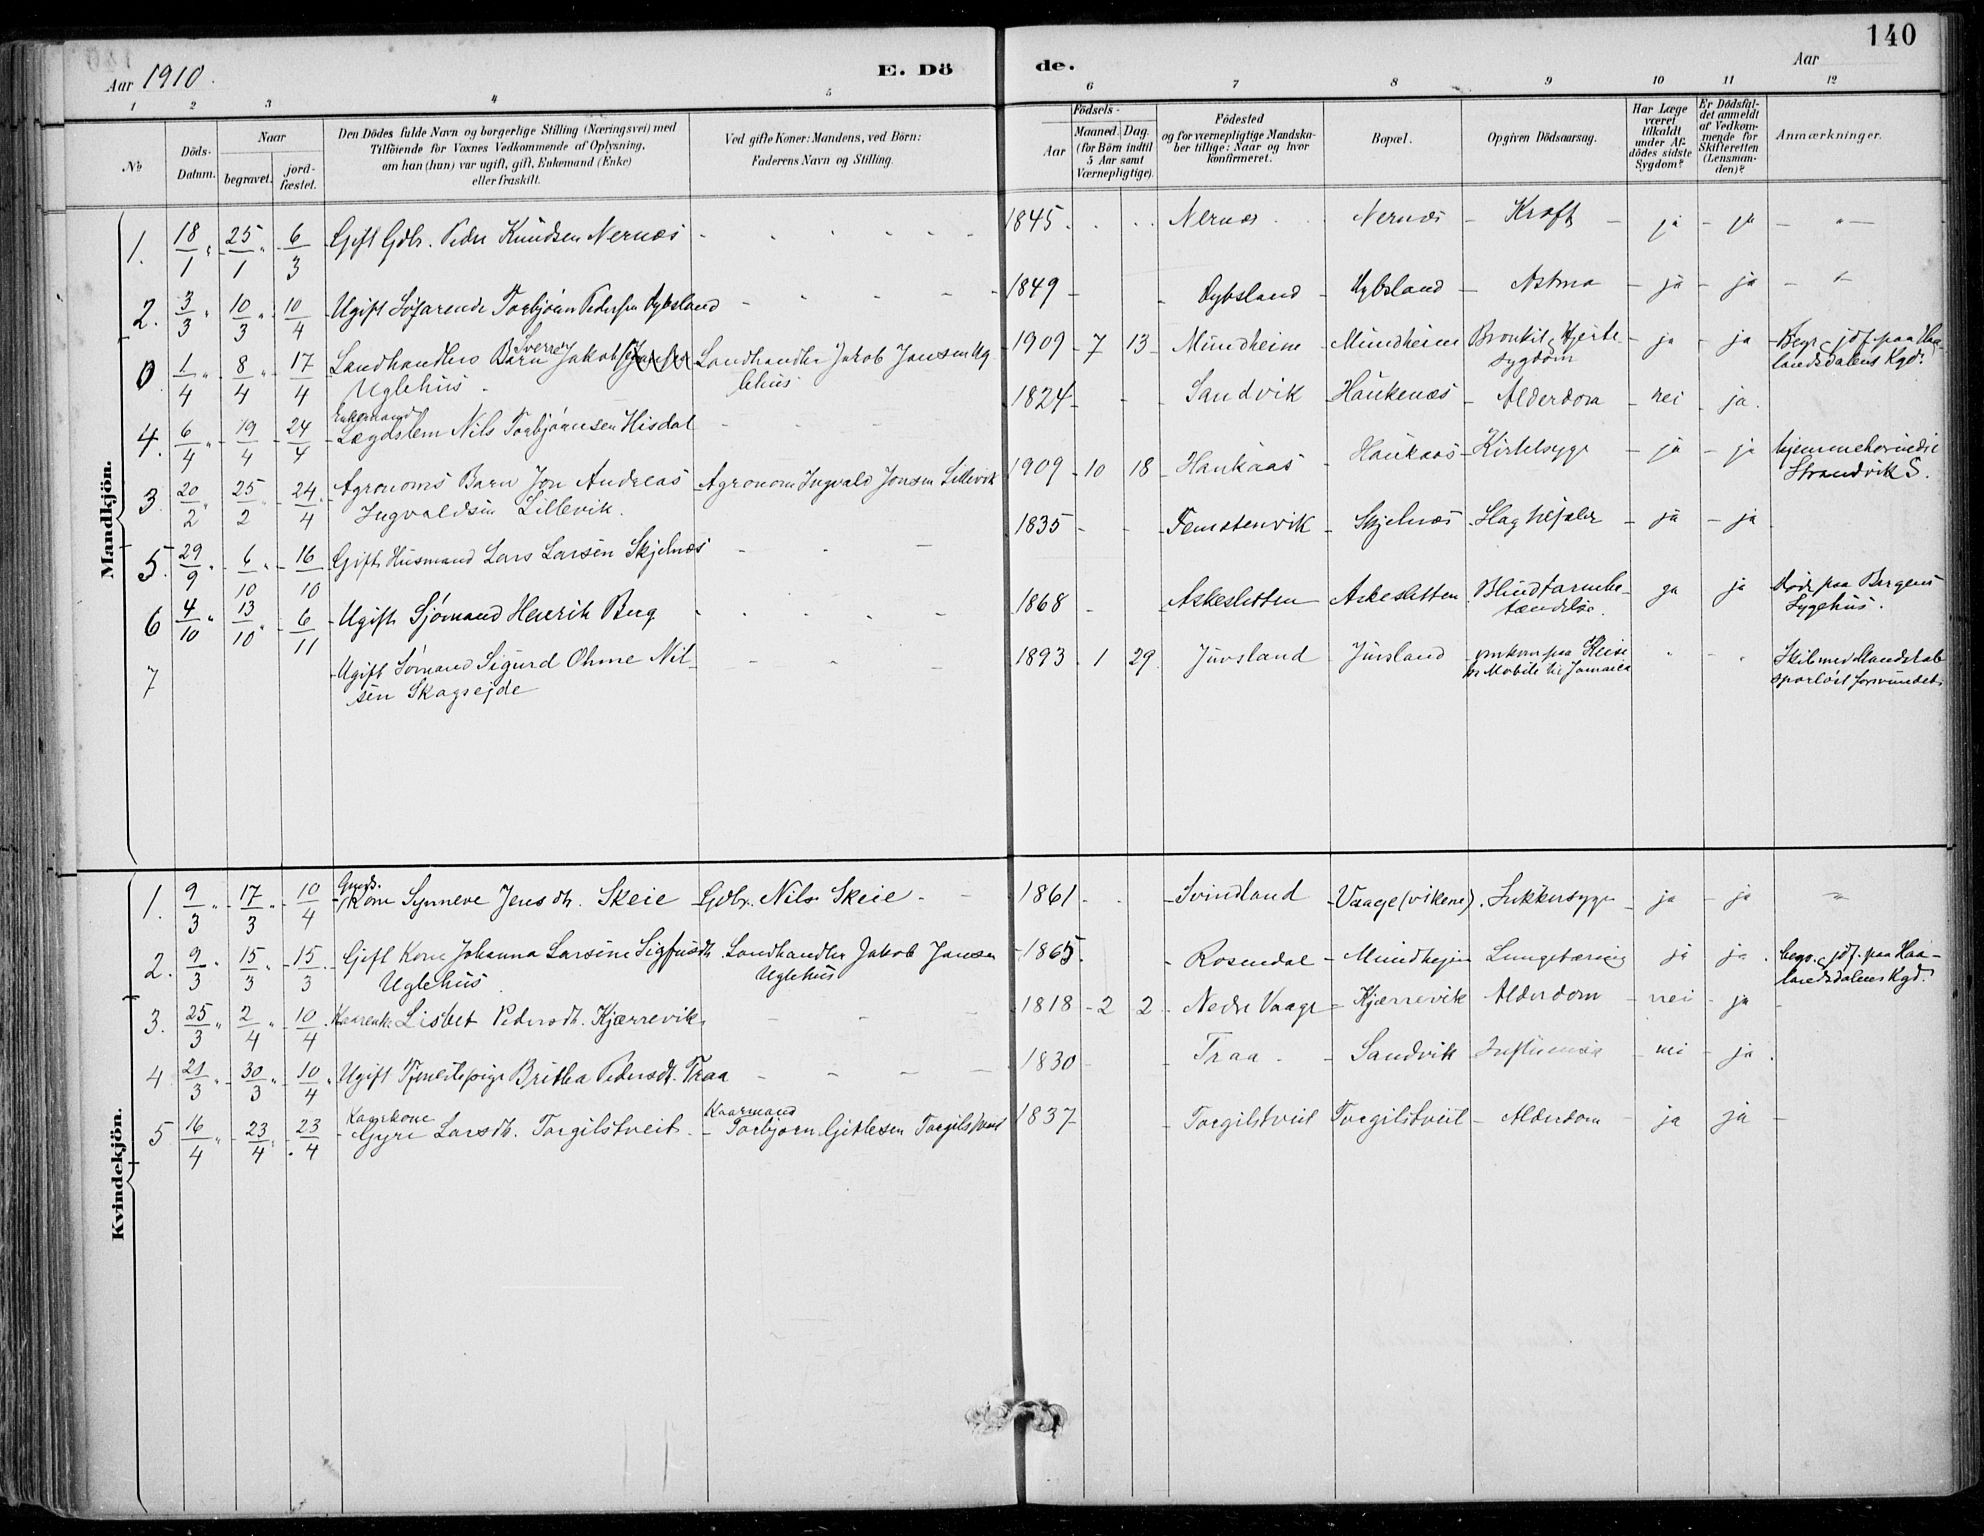 140
Aar 1910.
E. Dö
de.
Aar
1 2 3 4 5 6 7 8 9 10 11 12
№
Döds-Datum.
Naar
begravet.
jord-fæstet.
Den Dödes fulde Navn og borgerlige Stilling (Næringsvei) med
Tilföiende for Voxnes Vedkommende af Oplysning,
om han (hun) var ugift, gift, Enkemand (Enke)
eller fraskilt.
Ved gifte Koner: Mandens, ved Börn:
Faderens Navn og Stilling.
Födsels-
Aar
Maaned. Dag.
(for Börn indtil
5 Aar samt
Værnepligtige).
Födested
og for værnepligtige Mandska-
ber tillige: Naar og hvor
konfirmeret.
Bopæl.
Opgiven Dödsaarsag.
Har Læge
været
tilkaldt
under Af-
dödes sidste
Sygdom?
Er Dödsfal-
det anmeldt
af Vedkom-
mende for
Skifteretten
(Lensman-
den)?
Anmærkninger.
Mandkjön.
1. 18/1 " 25/1 " 6/3 Gift Gdbr. Peder Knudsen Nernæs - 1845 Nernæs - Nernæs - Kræft - ja - ja - "
2. 3/3 " 10/3 " 10/4 Ugift Søfarende Torbjörn Pedersen Dybsland - 1849 - Dybsland - Dybsland - Astma - ja - ja - "
0 1/4 " 8/4 " 17/4 Landhandlers Barn Sverre Jakob Jansen Landhandler Jakob Jansen Ug- 1909 - 7 13 - Mundheim - Mundheim Bronkit, Hjerte- ja - ja - Begr. & jdf. paa Haa-
Uglehus. lehus sygdom landsdalens Kgd.
Enkemand
4. 6/4 " 19/4 24/4 - Lægdslem Nils Torbjörnsen Hisdal 1824 - Sandvik - Haukenæs - Alderdom - nei - ja.
3. 20/2 " 25/2 - 24/4 Agronoms Barn Jon Andreas Agronom Ingvald Jonsen Lillevik 1909 - 10 18 - Haukaas - Haukaas - Kirtelsyge - ja - ja hjemmehørende i
Ingvaldsen Lillevik. Strandvik S.
5. 29/9 - 6/10 " 16/10 Gift Husmand Lars Larsen Skjelnæs - 1835 - Femstenvik - Skjelnæs - Slagtilfælde - ja - ja
6 4/10 " 13/10 " 6/11 - Ugift Sjømand Henrik Berg - 1868 - Askesletten - Askesletten Blindtarmbe- ja ja døde paa Bergens
tændelse. Sygehus.
7 - Ugift Sømand Sigurd Ohme Nil- 1893 - 1 29 Juvsland - Juvsland - omkom paa Reise " " Skib med Mandskab
sen Skogsejde fr. Mobile til Jamaica sporløst forsvundet.
Kvindekjön.
1. 9/3 " 17/3 " 10/4 Gmds. Kone Synneve Jensdtr. Skeie Gdbr. Nils Skeie - 1861 - Svindland - Vaage (vikene). Sukkersyge - ja - ja "
2. 9/3 " 15/3 - 15/3 Gift Kone Johanna Larsine Sigfusdtr. Landhandler Jakob Jansen - 1865. - Rosendal - Mundhejm - Lungetæring ja ja. begr. & jdf. paa Haa-
Uglehus. Uglehus landsdalens Kgd.
3. 25/3 " 2/4 " 10/4 Kaarenke Lisbet Pedersdtr. Kjærrevik - 1818 - 2 2 - Nedre Vaage - Kjærrevik Alderdom - nei - ja -
4. 21/3 " 30/3 " 10/4 Ugift Tjenestepige Britha Pedersdtr. Traa - 1830 - Traa. - Sandvik - Influensa - nei - ja.
Kaarkone Kaarmand
5 16/4 " 23/4 " 23/4 - Gyri Larsdtr. Torgilstveit. - Torbjørn Gitlesen Torgilstveit 1837 - Torgilstveit Torgilstveit - Alderdom - ja ja -